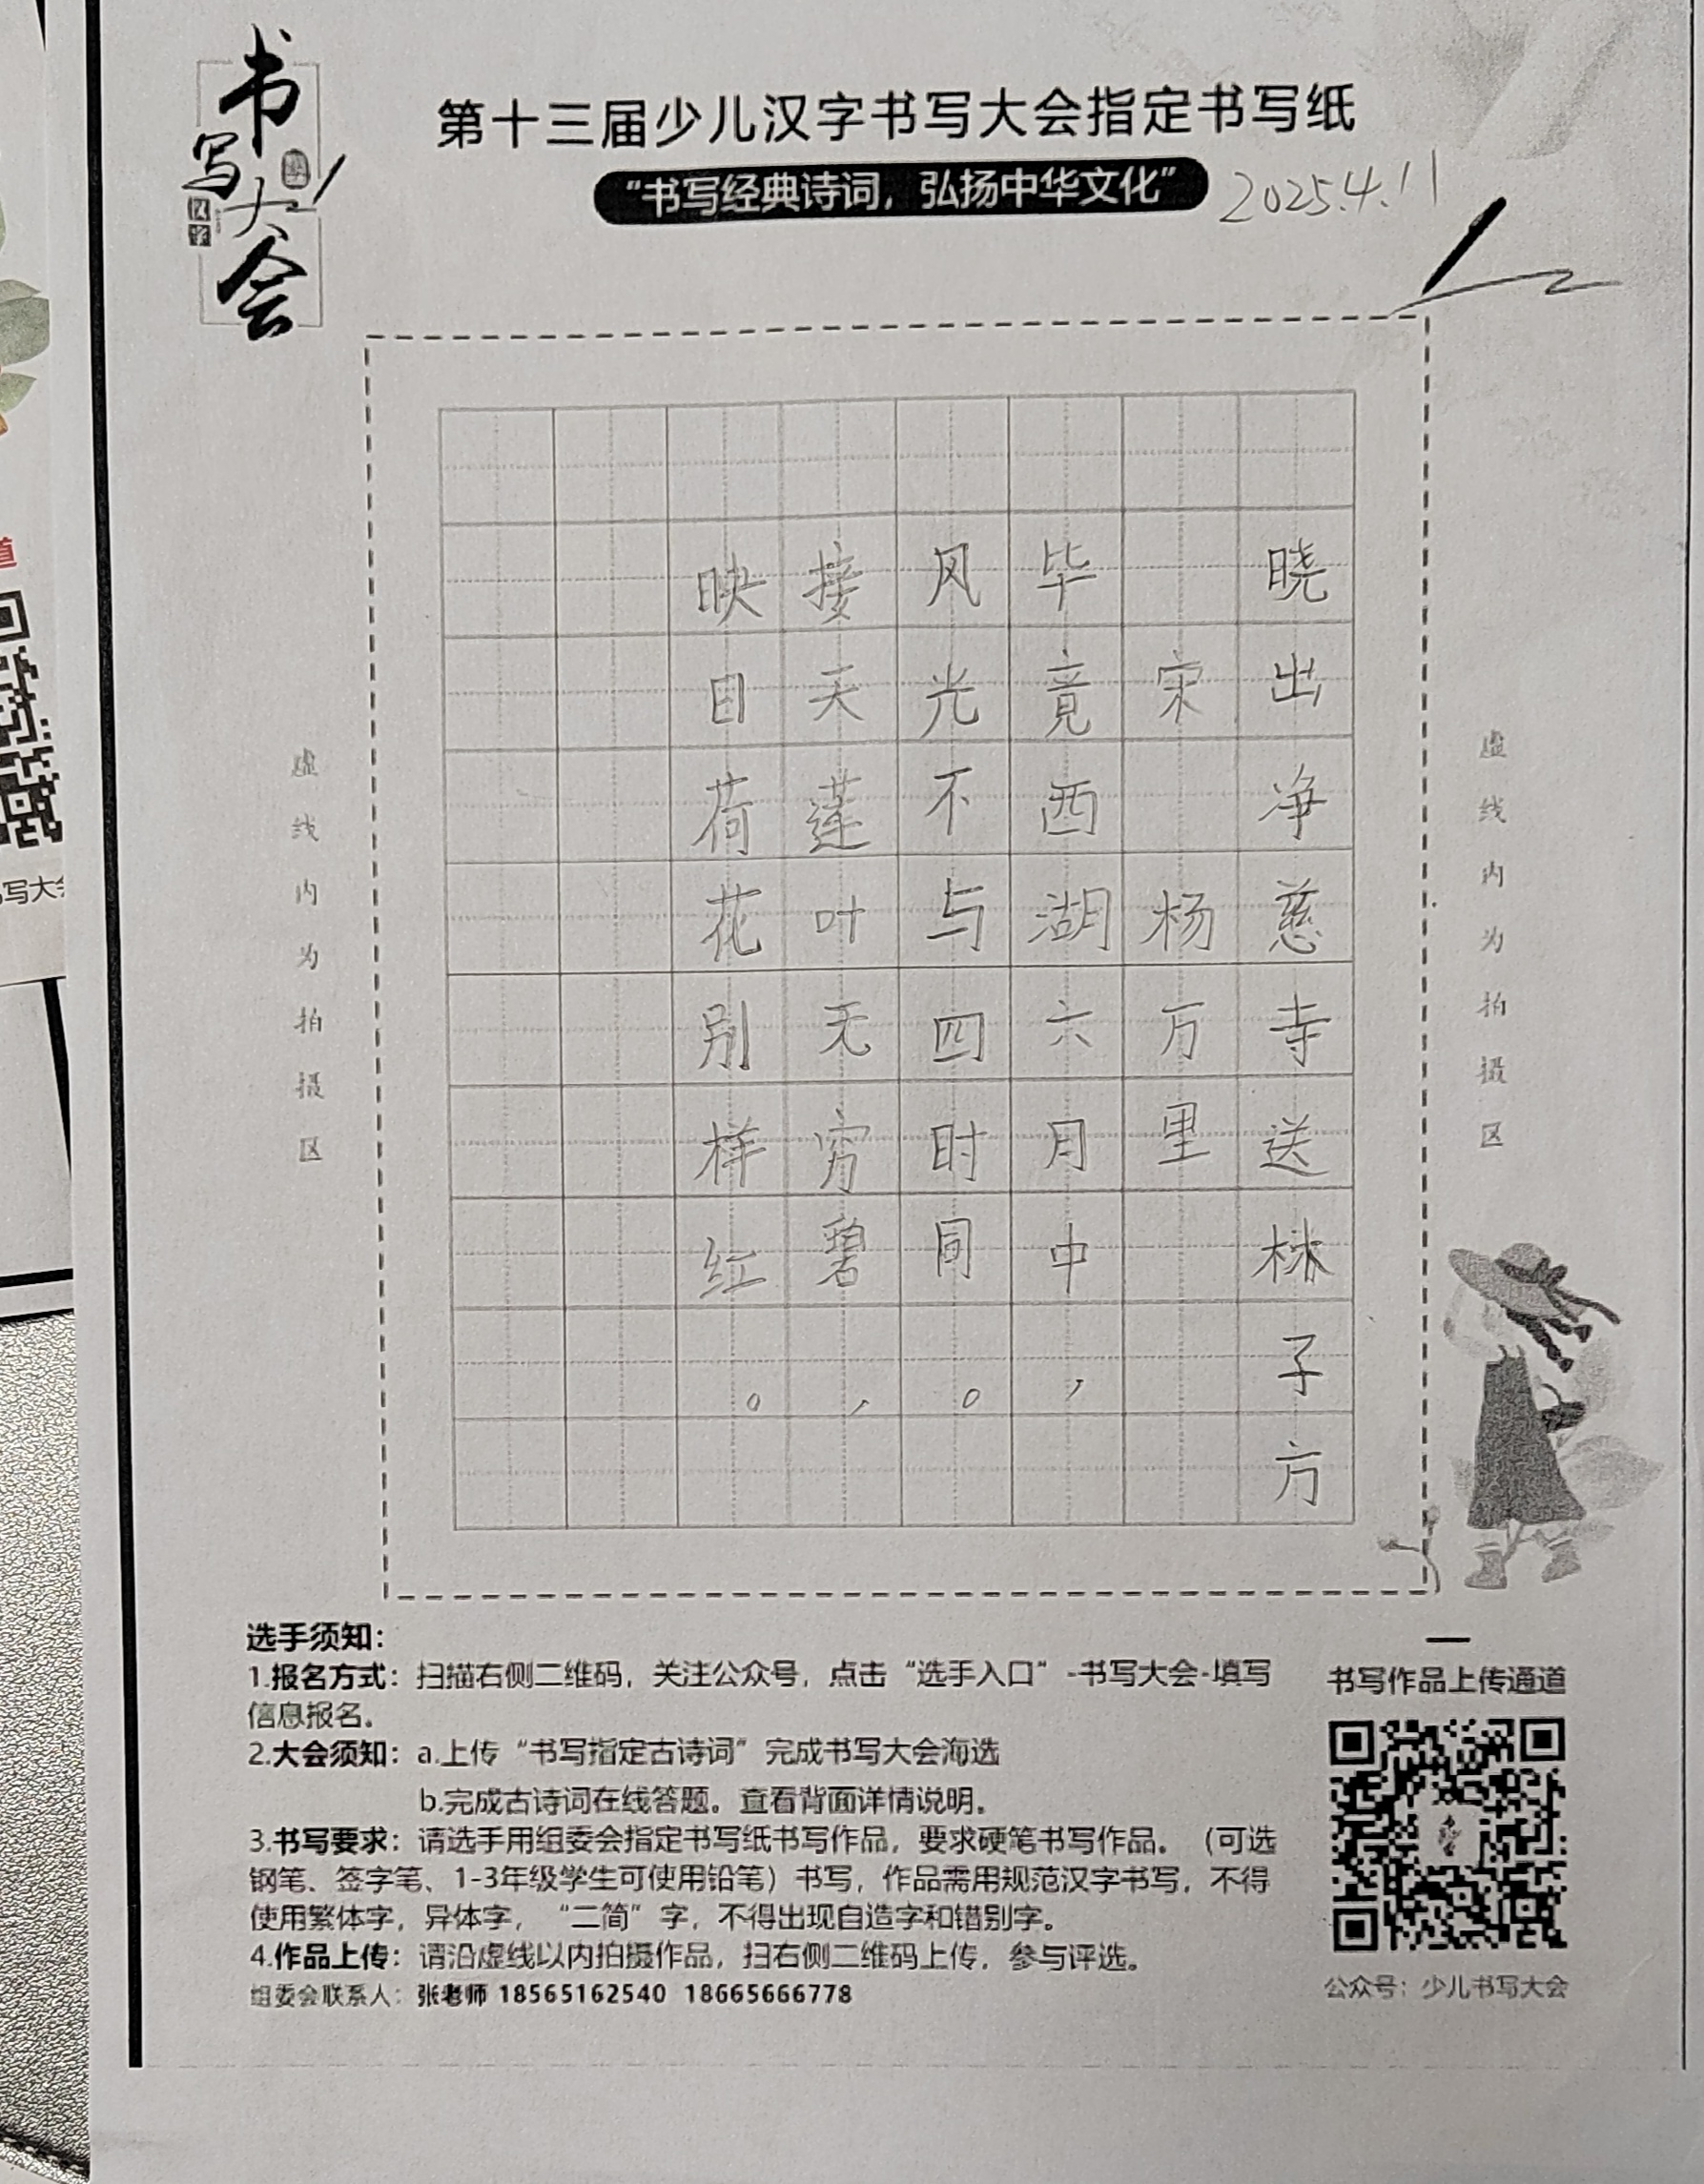 书写大会
汉字
第十三届少儿汉字书写大会指定书写纸
“书写经典诗词，弘扬中华文化”
2025.4.11
晓出净慈寺送林子方
宋 杨万里
毕竟西湖六月中，
风光不与四时同。
接天莲叶无穷碧，
映日荷花别样红。
虚线内为拍摄区
虚线内为拍摄区
选手须知：
1.报名方式：扫描右侧二维码，关注公众号，点击“选手入口”-书写大会-填写
信息报名。
2.大会须知：a.上传“书写指定古诗词”完成书写大会海选
b.完成古诗词在线答题。查看背面详情说明。
3.书写要求：请选手用组委会指定书写纸书写作品，要求硬笔书写作品。（可选
钢笔、签字笔、1-3年级学生可使用铅笔）书写，作品需用规范汉字书写，不得
使用繁体字，异体字，“二简”字，不得出现自造字和错别字。
4.作品上传：请沿虚线以内拍摄作品，扫右侧二维码上传，参与评选。
组委会联系人：张老师 18565162540 18665666778
书写作品上传通道
公众号：少儿书写大会
道
写大会